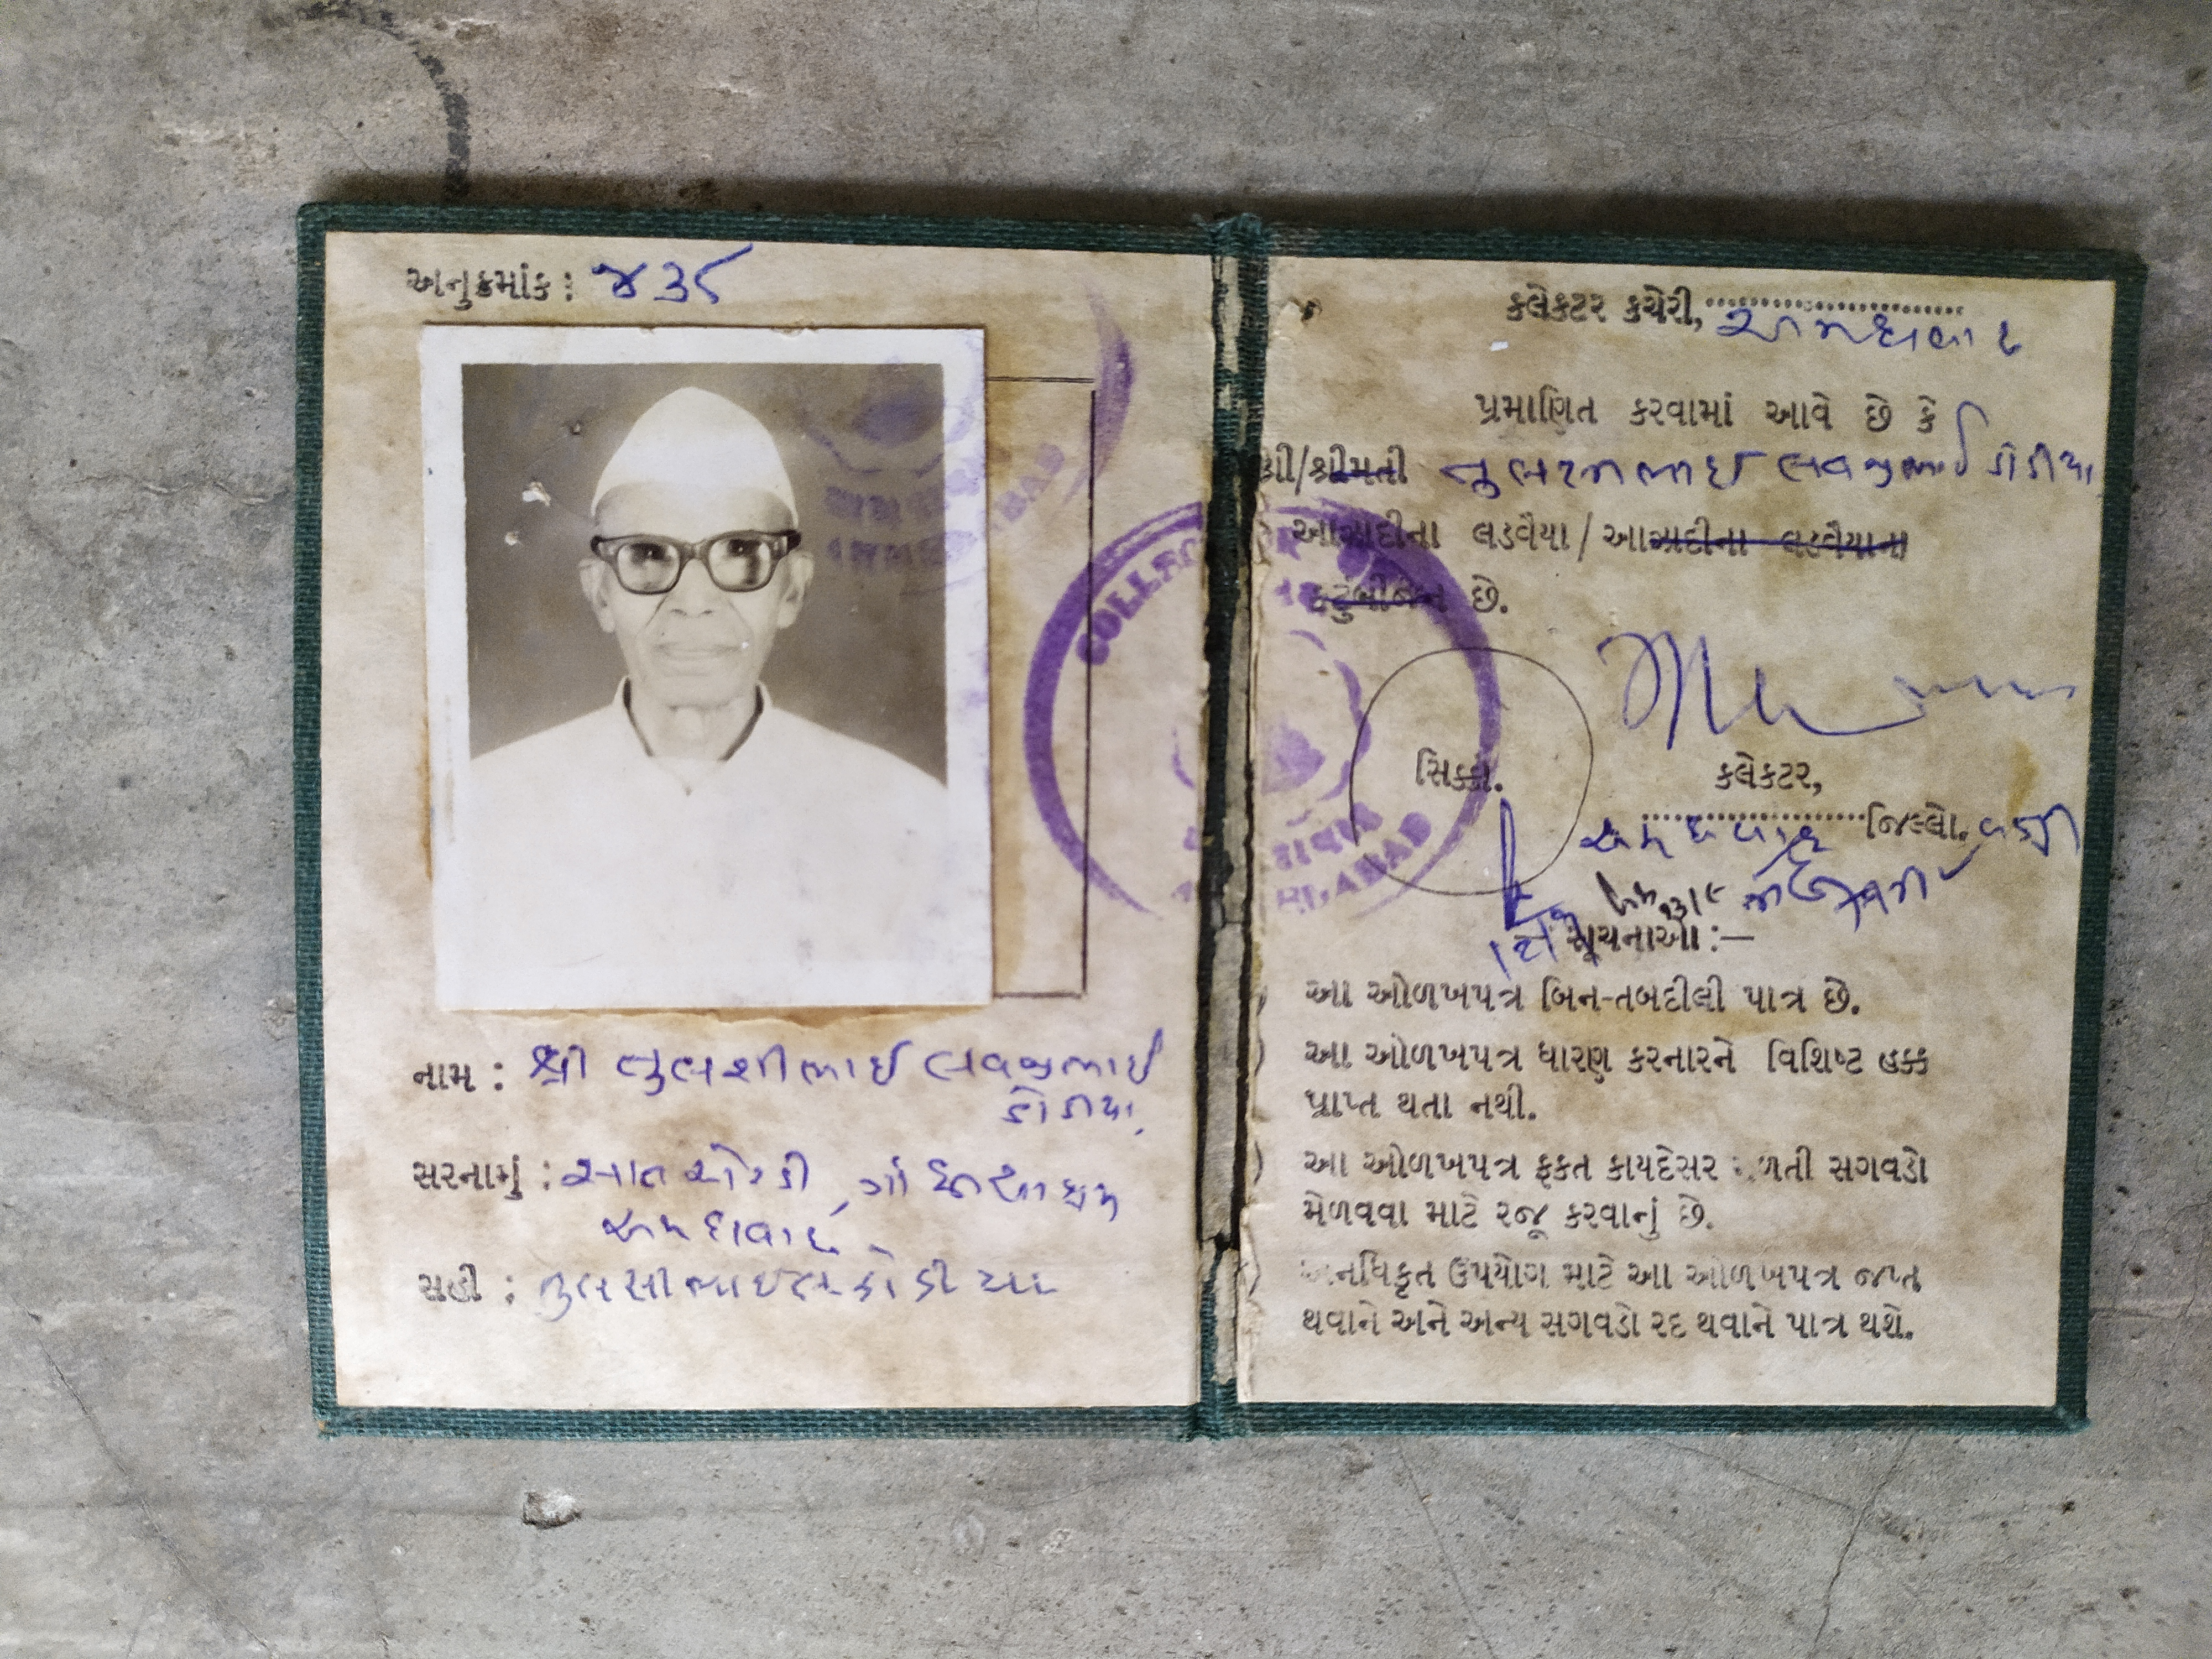 અનુક્રમાંક : ૪૩૮
નામ : શ્રી તુલશીભાઈ લવજીભાઈ
ડોડીયા
સરનામું : સાત ઓરડી, ગાંધીઆશ્રમ
અમદાવાદ
સહી : તુલસીભાઈ લ ડોડીયા
કલેક્ટર કચેરી, અમદાવાદ
પ્રમાણિત કરવામાં આવે છે કે
શ્રી/શ્રીમતી તુલસીભાઈ લવજીભાઈ ડોડીયા
આઝાદીના લડવૈયા / આઝાદીના લડવૈયાના
કુટુંબીજન છે.
COLLECTOR
AHMEDABAD
સિક્કો.
કલેક્ટર,
અમદાવાદ જિલ્લો. વતી
સૂચનાઓ :—
આ ઓળખપત્ર બિન-તબદીલી પાત્ર છે.
આ ઓળખપત્ર ધારણ કરનારને વિશિષ્ટ હક્ક
પ્રાપ્ત થતા નથી.
આ ઓળખપત્ર ફક્ત કાયદેસર મળતી સગવડો
મેળવવા માટે રજૂ કરવાનું છે.
અનધિકૃત ઉપયોગ માટે આ ઓળખપત્ર જપ્ત
થવાને અને અન્ય સગવડો રદ થવાને પાત્ર થશે.